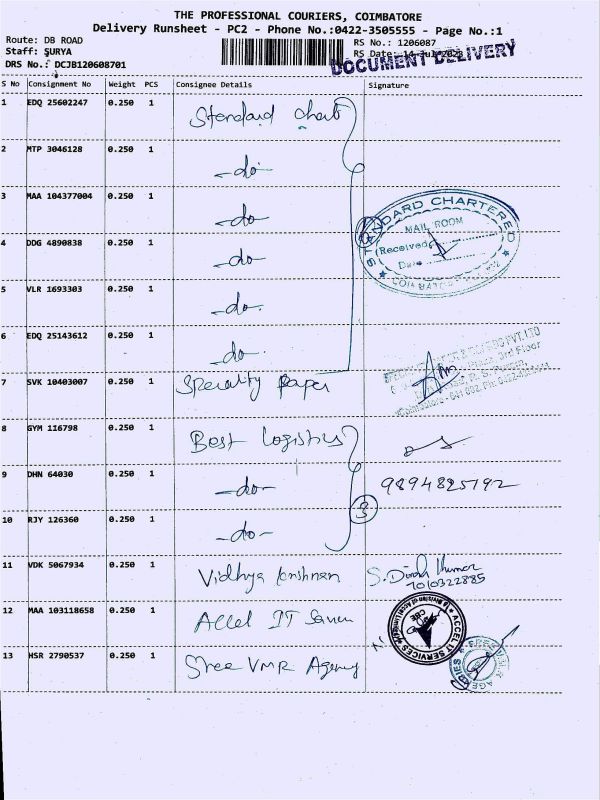 THE PROFESSIONAL COURIERS, COIMBATORE
Delivery Runsheet - PC2 - Phone No.:0422-3505555 - Page No.:1
Route: DB ROAD
RS No.: 1206087
Staff: SURYA
RS Date: 14-Jul-2023
DOCUMENT DELIVERY
DRS No.: DCJB120608701
S No Consignment No Weight PCS Consignee Details Signature
1 EDQ 25602247 0.250 1 Standard Chart
2 MTP 3046128 0.250 1 -do-
3 MAA 104377004 0.250 1 -do
STANDARD CHARTERED
MAIL ROOM
Received
Date
4 DDG 4890838 0.250 1 -do
5 VLR 1693303 0.250 1 -do.
6 EDQ 25143612 0.250 1 -do.
3rd Floor
7 SVK 10403007 0.250 1 Speciality paper
8 GYM 116798 0.250 1 Best logistics
9 DHN 64030 0.250 1 -do- 9894825192
3
10 RJY 126360 0.250 1 -do-
11 VDK 5067934 0.250 1 Vidhya krishnan S. Dinesh Kumar
7010322885
12 MAA 103118658 0.250 1 Accel IT
13 HSR 2790537 0.250 1 Shree VMR Agency